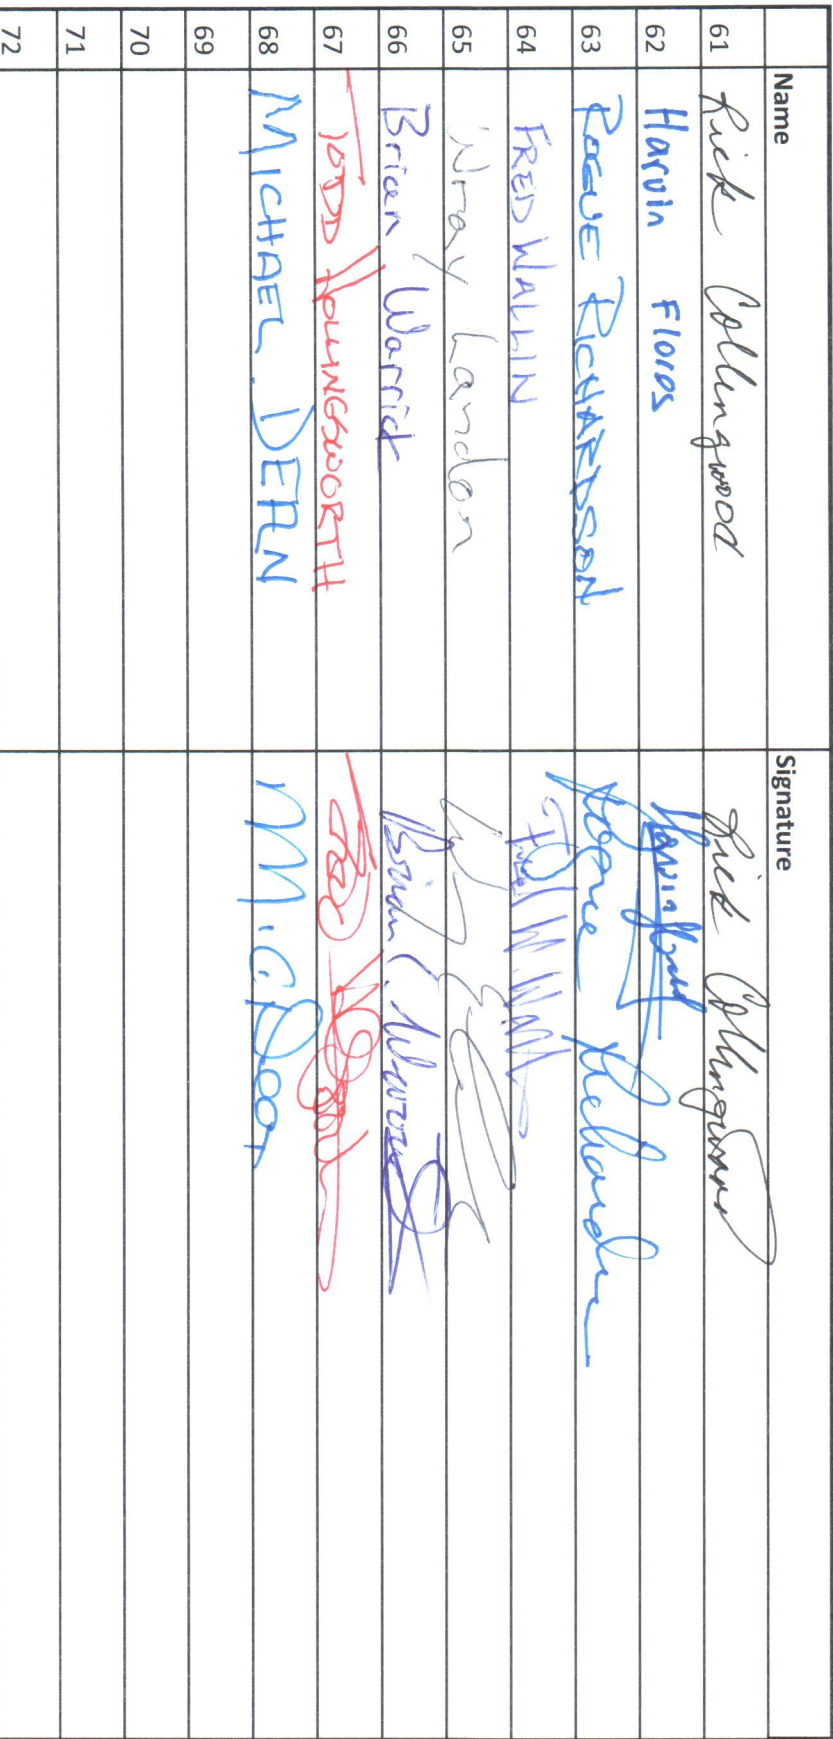 Name Signature
61 Rick Collingwood Rick Collingwood
62 Harvin Floros
63 ROGUE RICHARDSON Rogue
64 FRED WALLIN Fred
65 Wray Landon
66 Brian Warrick Brian C. Warrick
67 TODD HOLLINGSWORTH
68 MICHAEL DEAN M.C.
69
70
71
72